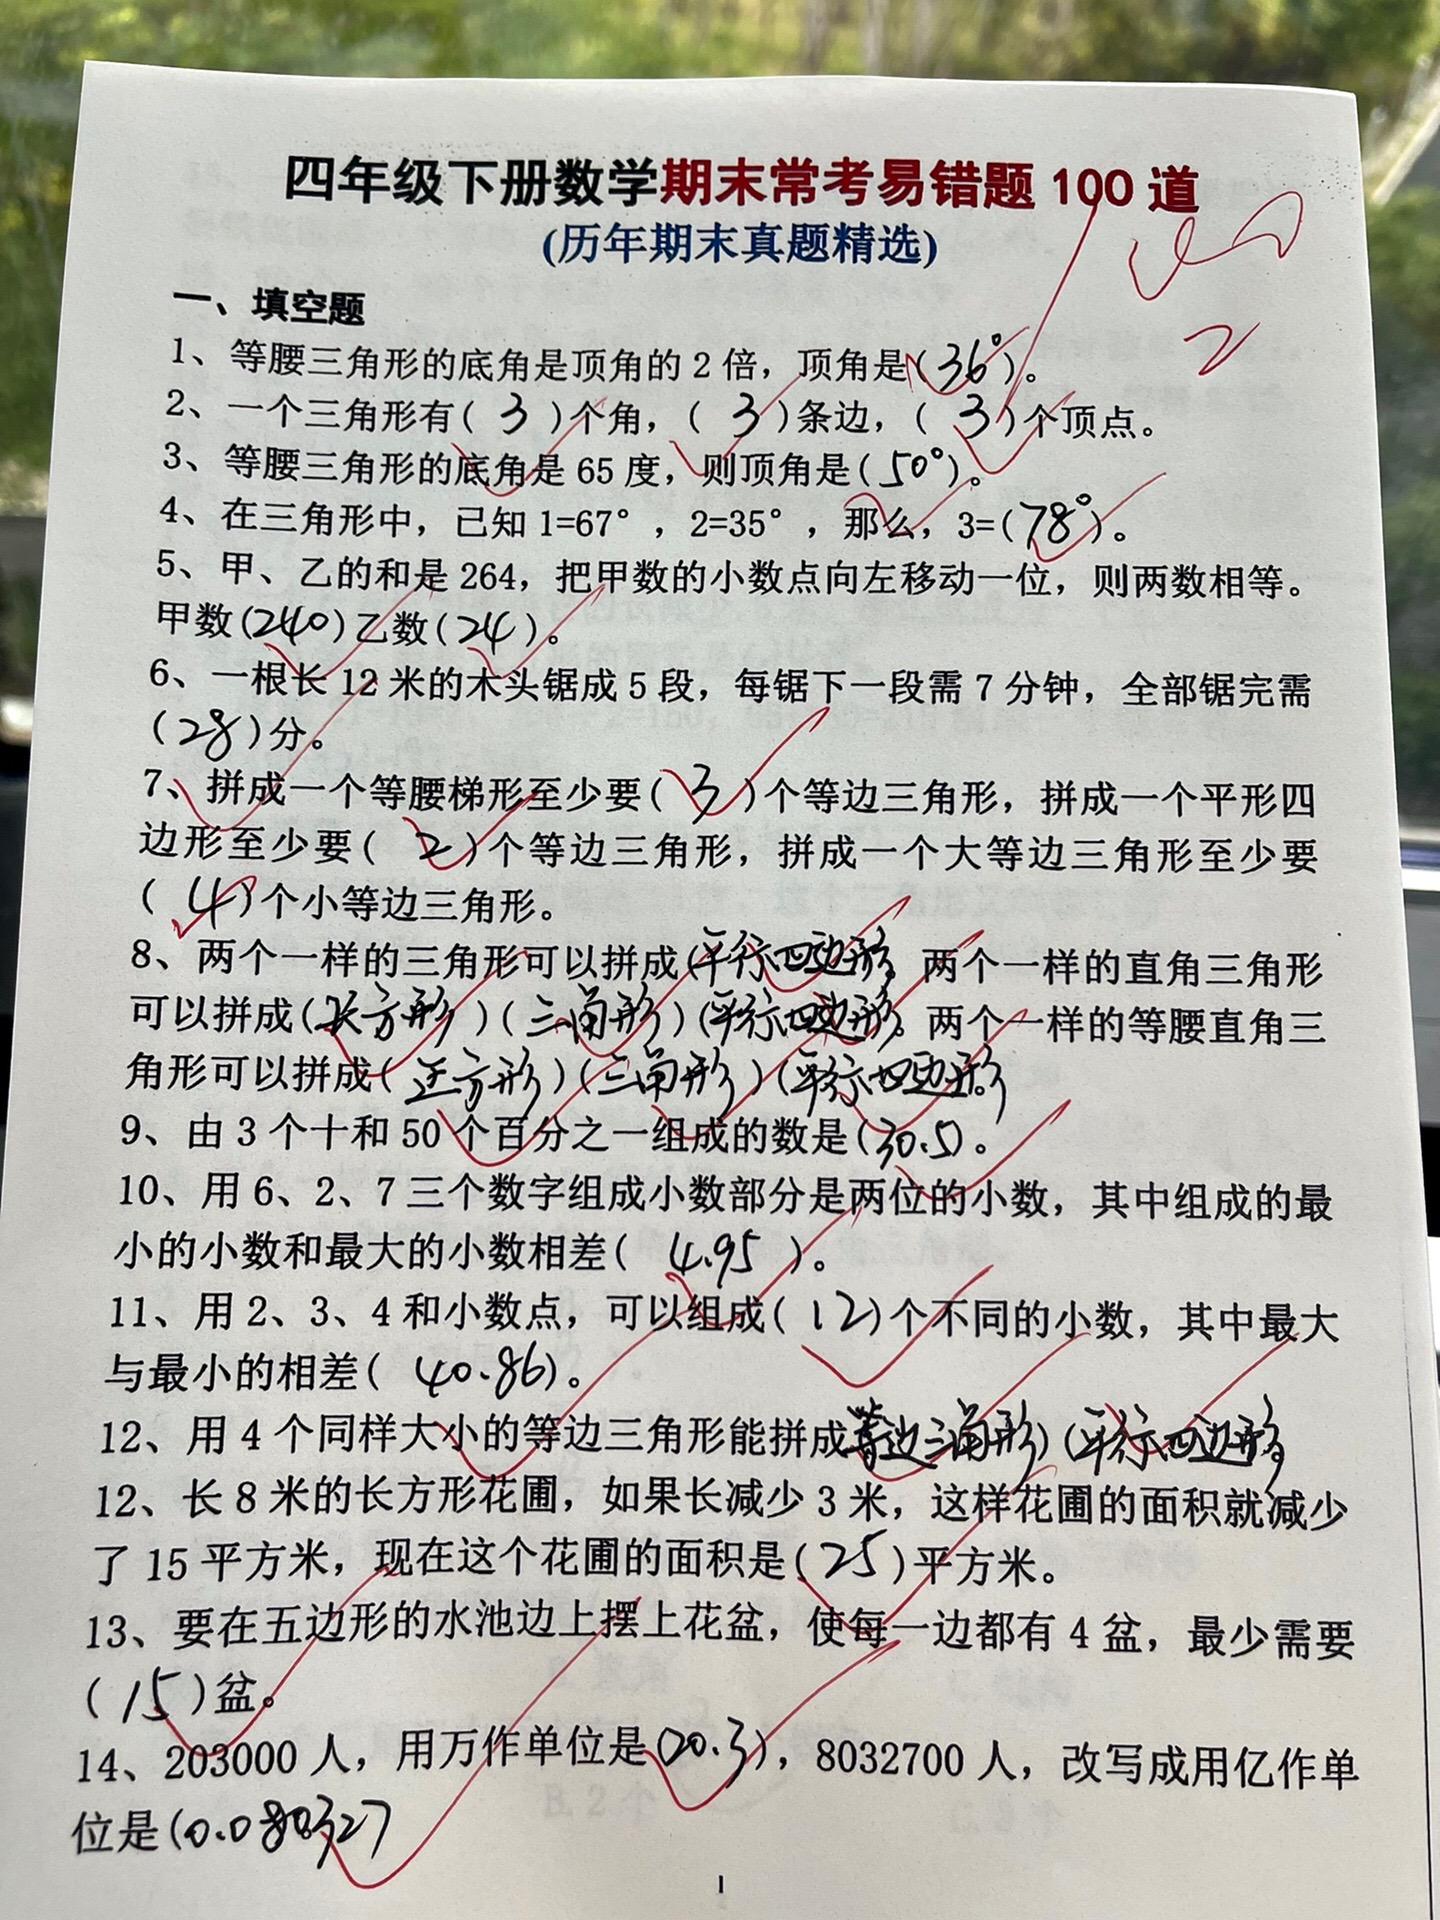 四年级下册数学期末常考易错题100道
(历年期末真题精选)
一、填空题
1、等腰三角形的底角是顶角的2倍，顶角是(36°)。
2、一个三角形有(3)个角，(3)条边，(3)个顶点。
3、等腰三角形的底角是65度，则顶角是(50°)。
4、在三角形中，已知1=67°，2=35°，那么，3=(78°)。
5、甲、乙的和是264，把甲数的小数点向左移动一位，则两数相等。
甲数(240)乙数(24)。
6、一根长12米的木头锯成5段，每锯下一段需7分钟，全部锯完需
(28)分。
7、拼成一个等腰梯形至少要(3)个等边三角形，拼成一个平形四
边形至少要(2)个等边三角形，拼成一个大等边三角形至少要
(4)个小等边三角形。
8、两个一样的三角形可以拼成(平行四边形。两个一样的直角三角形
可以拼成(长方形)(三角形)(平行四边形。两个一样的等腰直角三
角形可以拼成(正方形)(三角形)(平行四边形
9、由3个十和50个百分之一组成的数是(30.5)。
10、用6、2、7三个数字组成小数部分是两位的小数，其中组成的最
小的小数和最大的小数相差(4.95)。
11、用2、3、4和小数点，可以组成(12)个不同的小数，其中最大
与最小的相差(40.86)。
12、用4个同样大小的等边三角形能拼成等边三角形)(平行四边形。
12、长8米的长方形花圃，如果长减少3米，这样花圃的面积就减少
了15平方米，现在这个花圃的面积是(25)平方米。
13、要在五边形的水池边上摆上花盆，使每一边都有4盆，最少需要
(15)盆。
14、203000人，用万作单位是(20.3)，8032700人，改写成用亿作单
位是(0.080327
1